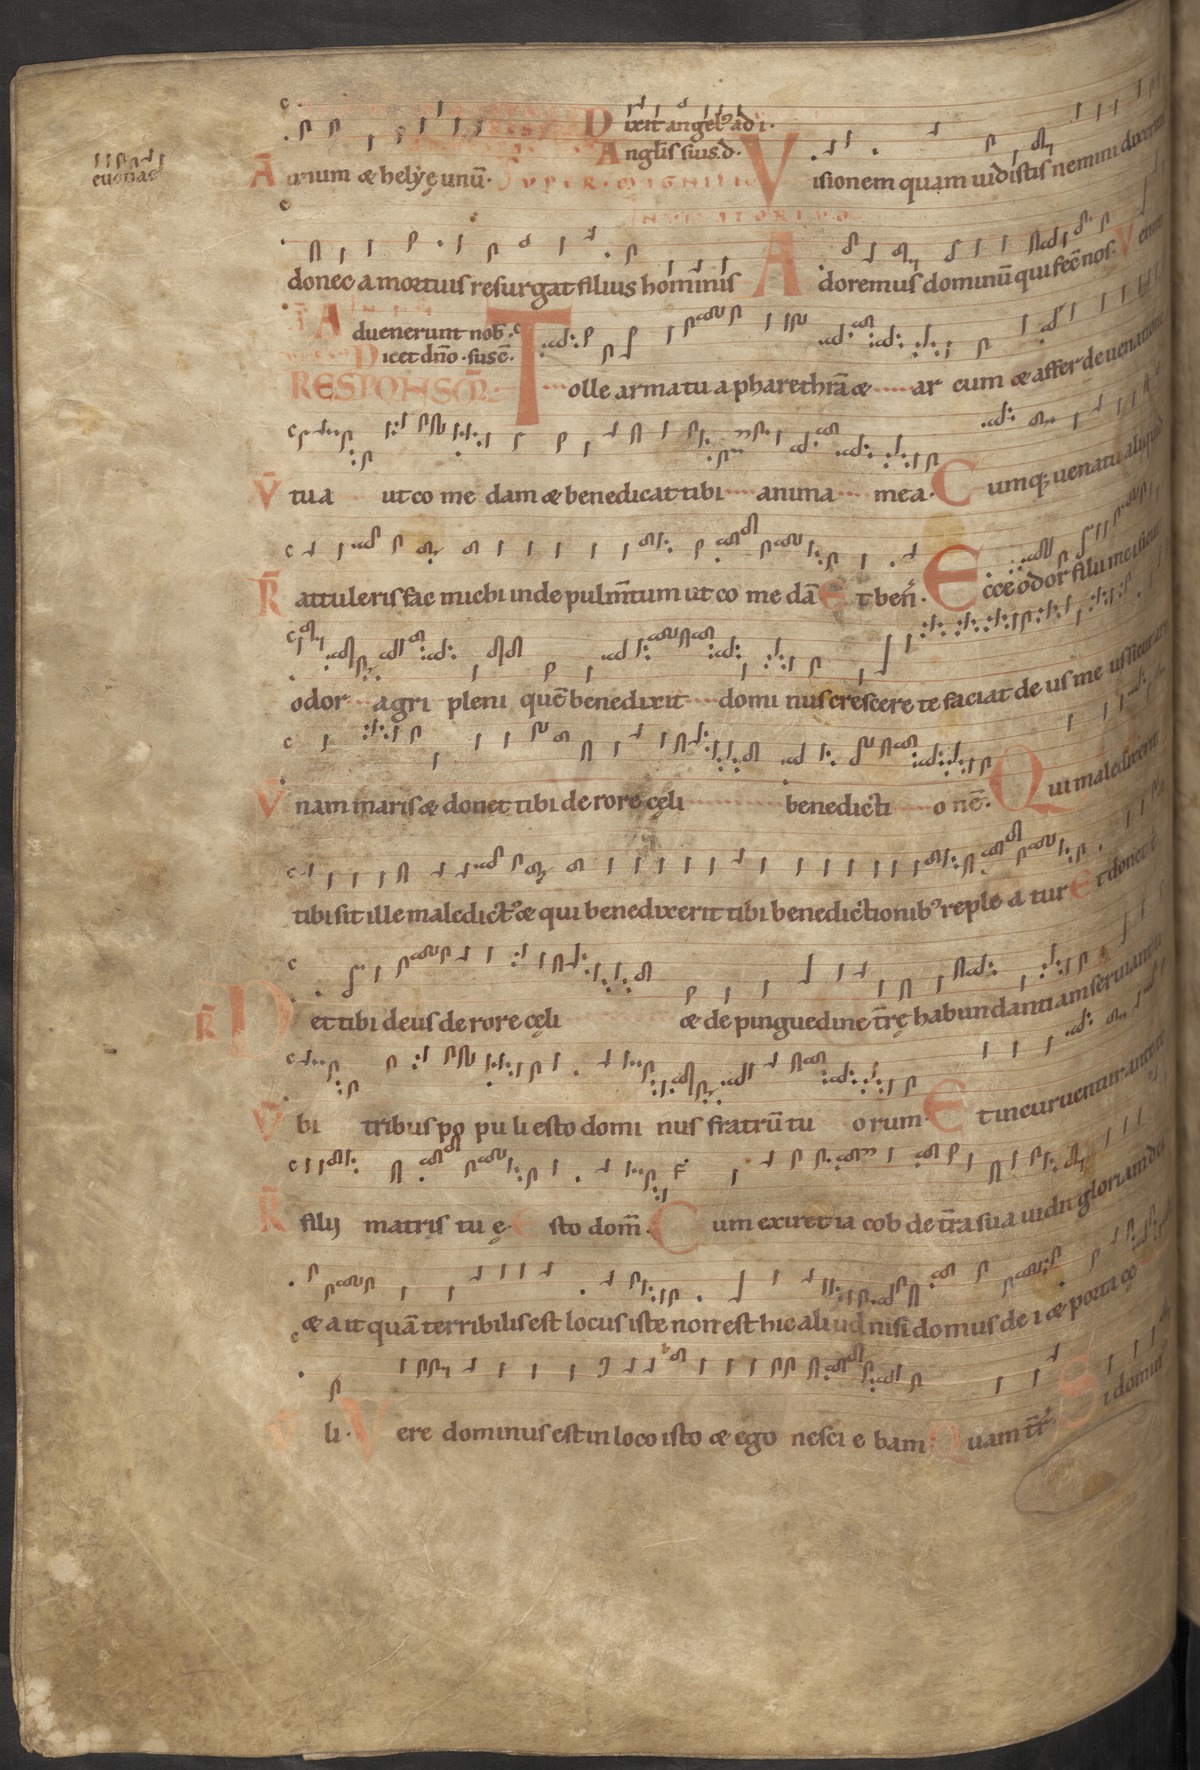 Dixit angel' ad i·
Angl'is suis d·
euouae
Ā unum æ helyę unū· SUPER MAGNIFIC Visionem quam uidistis nemini dixeritis
INVITATORIVM
donec a mortuis resurgat filius hominis Adoremus dominū qui fec̄ nos· Venite
Aduenerunt nob̄·
Dicet dn̄o · susc̄·
RESPONSO᷑ Tolle arma tua pharethrā æ ar cum æ affer de uenatione
V̄ tua ut co me dam æ benedicat tibi anima mea· Cumq; uenatu aliquid
R̄ attuleris fac michi inde pulm̄tum ut co me dā Et ben̄· Ecce odor filii mei sicut
odor agri pleni quē benedixit domi nus crescere te faciat de us me us sicut arā
V̄ nam maris æ donet tibi de rore cęli benedicti o nē· Qui maledixerit
tibi sit ille maledict' æ qui benedixerit tibi benedictionib' reple a tur Et donet t
R̄ Det tibi deus de rore cęli æ de pinguedine t̄rę habundantiam seruiant
V̄ bi tribus po pu li esto domi nus fratrū tu o rum· Et incuruentur ante te
R̄ filij matris tu ę· Esto dom̄· Cum exiret ia cob de t̄ra sua uidit gloriam dei
æ a it quā terribilis est locus iste non est hic aliud nisi domus de i æ porta cę
li· Vere dominus est in loco isto æ ego nesci e bam Quam t̄r· Si dominus